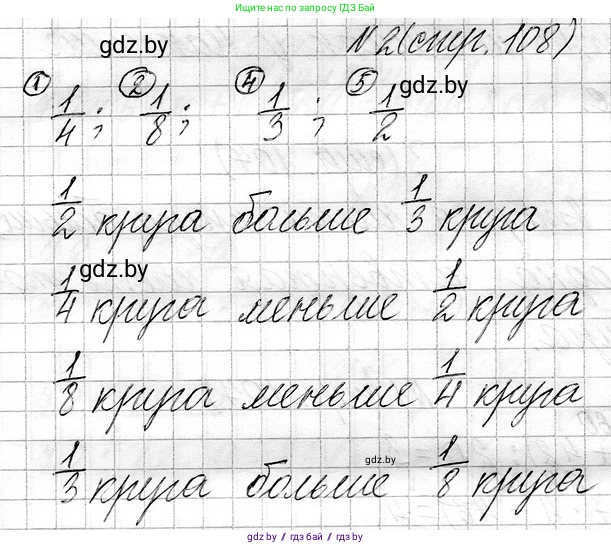 Ищите нас по запросу гдз.бай
gdz.by
№ 2 (стр. 108)
① 1/4; ② 1/8; ④ 1/3; ⑤ 1/2
gdz.by
1/2 круга больше 1/3 круга
gdz.by
1/4 круга меньше 1/2 круга
1/8 круга меньше 1/4 круга
gdz.by
1/3 круга больше 1/8 круга
gdz.by // гдз бай // гдз.бай